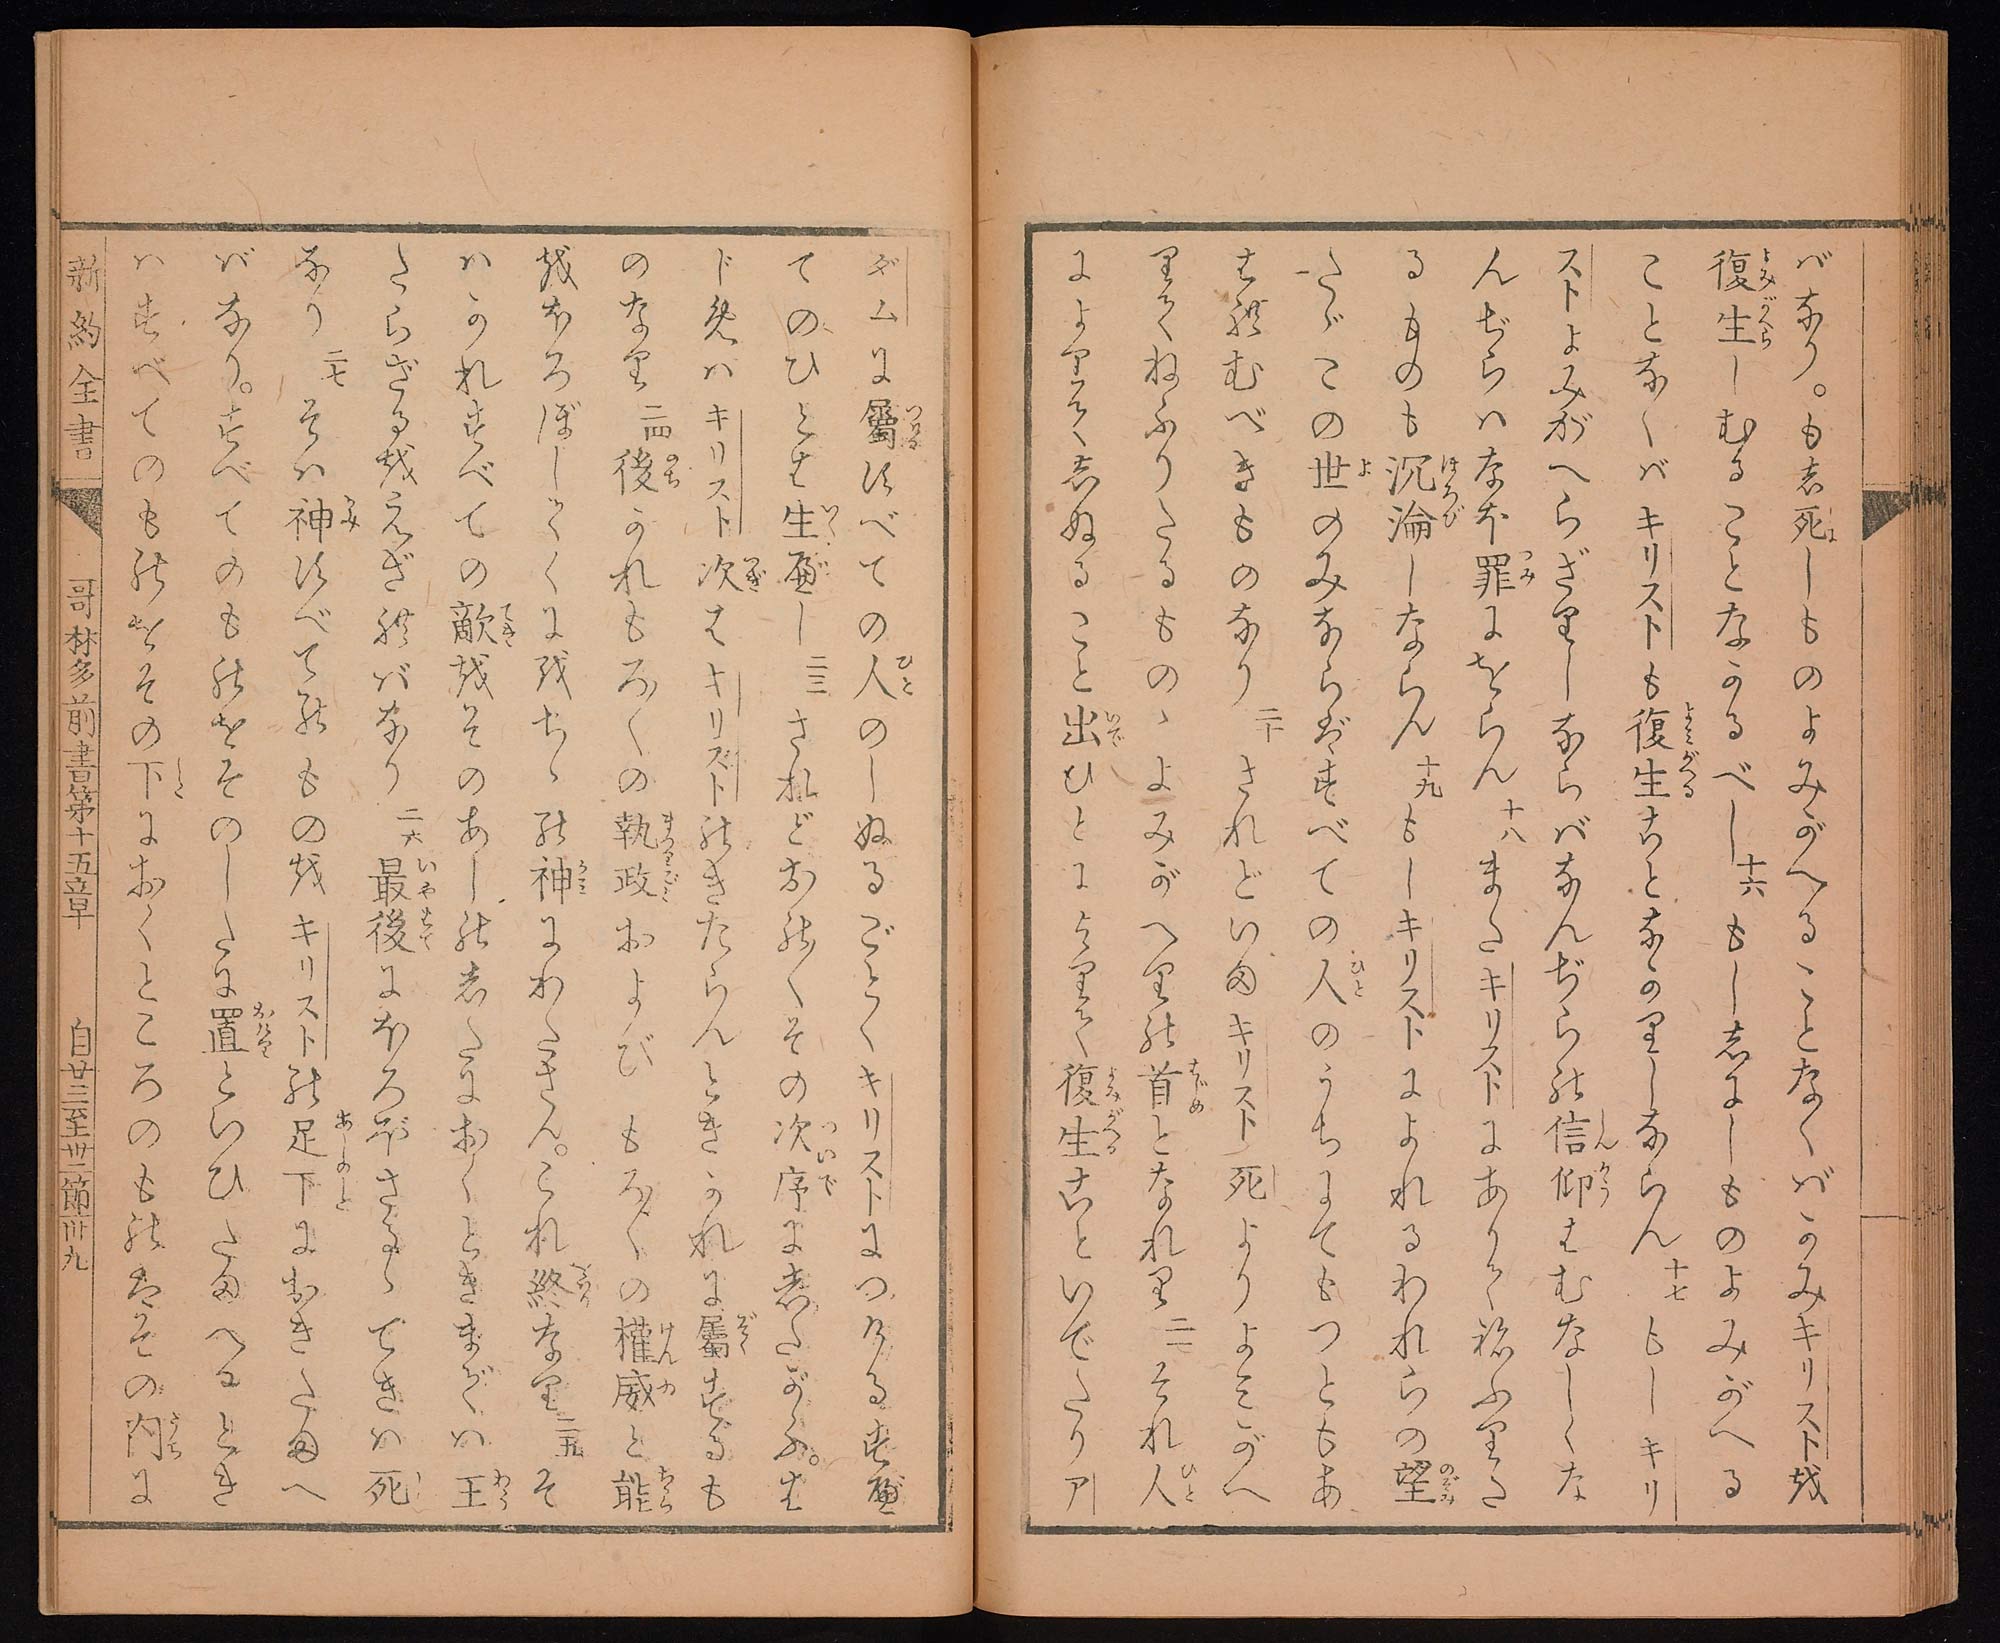 バなり。もし死しものよみがへることなくバかみキリストを
復生しむることなかるべし 十六 もし志にしものよみがへる
ことなくバキリストも復生ことなかりしならん 十七 もしキリ
ストよみがへらざりしならバなんぢらの信仰はむなしくな
んぢらハなほ罪にをらん 十八 またキリストにありてねふりた
るものも沉淪しならん 十九 もしキリストによれるわれらの望
たゞこの世のみならばすべての人のうちにてもつともあ
はれむべきものなり 二十 されどいまキリスト死よりよみがへ
りてねふりたるものゝよみがへりの首となれり 二一 それ人
によりて志ぬること出ひとにより復生こといでたりア
ダムに屬すべての人のしぬるごとくキリストにつけるすべ
てのひとは生べし 二三 されどおのくその次序に志たがふ。は
じめハキリスト次はキリストのきたらんときかれに屬するも
のなり 二四 後かれもろ〱の執政およびもろ〱の權威と能
をほろぼしてくにをちゝの神にわたさん。これ終なり 二五 そ
ハかれすべての敵をそのあしの志たにおくときまでハ王
たらざるをえざれバなり 二六 最後にほろぼさるゝてきハ死
なり 二七 そハ神すべてのものをキリストの足下におきたまへ
バなり。すべてのものをそのしたに置といひたまへるとき
ハすべてのものをその下におくところのものはその内に
新約全書 哥林多前書第十五章 自廿三至廿二節 卅九